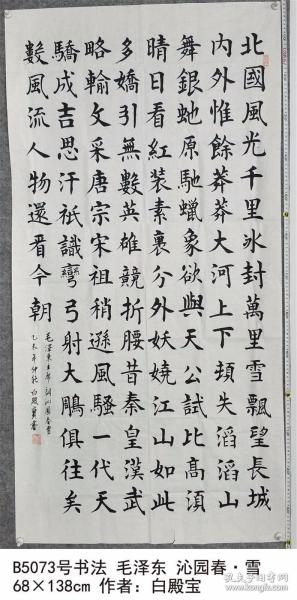 北國風光千里冰封萬里雪飄望長城
内外惟餘莽莽大河上下頓失滔滔山
舞銀虵原馳蠟象欲與天公試比高須
晴日看紅装素裹分外妖嬈江山如此
多嬌引無數英雄競折腰昔秦皇漢武
略輸文采唐宗宋祖稍遜風騷一代天
驕成吉思汗祇識彎弓射大鵰俱往矣
數風流人物還看今朝
毛澤東主席詞沁園春雪
乙未年仲秋白殿寶書
B5073号书法 毛泽东 沁园春·雪
68×138cm 作者：白殿宝